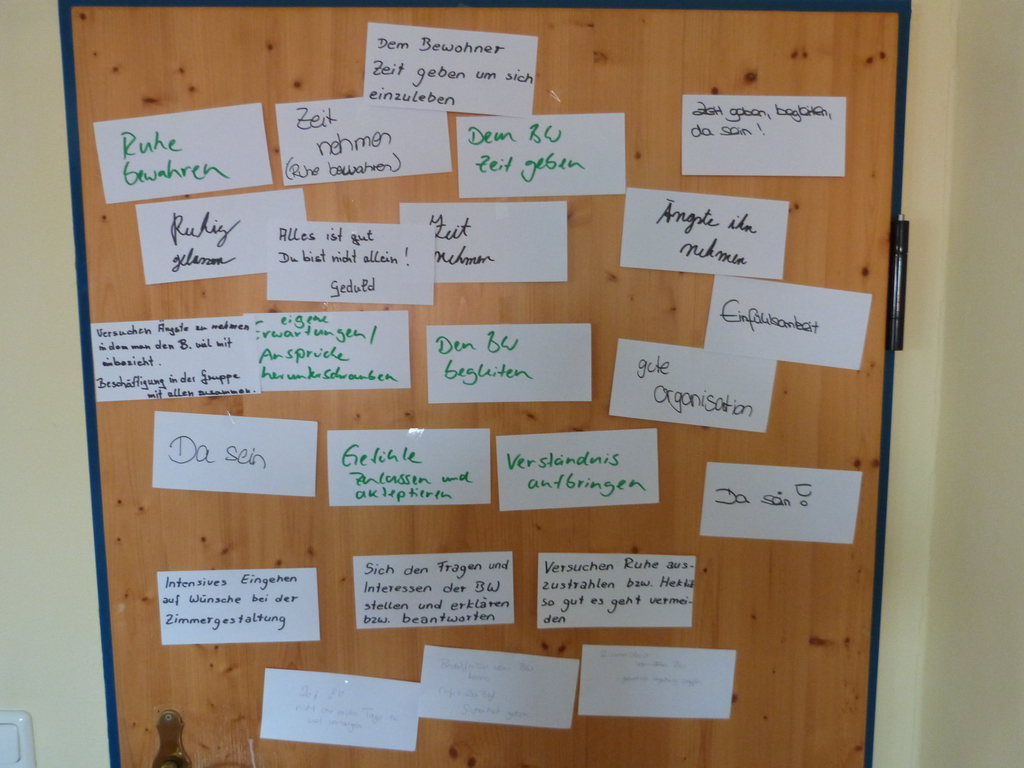 Dem Bewohner
Zeit geben um sich
einzuleben
Ruhe
bewahren
Zeit
nehmen
(Ruhe bewahren)
Dem BW
Zeit geben
Zeit geben, begleiten,
da sein!
Ruhig
gelassen
Alles ist gut
Du bist nicht allein!
Geduld
Zeit
nehmen
Ängste ihn
nehmen
Einfühlsamkeit
Versuchen Ängste zu nehmen
in dem man den B. viel mit
einbezieht.
Beschäftigung in der Gruppe
mit allen zusammen.
eigene
Erwartungen/
Ansprüche
herunterschrauben
Den BW
begleiten
gute
Organisation
Da sein
Gefühle
zulassen und
akteptieren
Verständnis
aufbringen
Da sein!
Intensives Eingehen
auf Wünsche bei der
Zimmergestaltung
Sich den Fragen und
Interessen der BW
stellen und erklären
bzw. beantworten
Versuchen Ruhe aus-
zustrahlen bzw. Hektik
so gut es geht vermei-
den